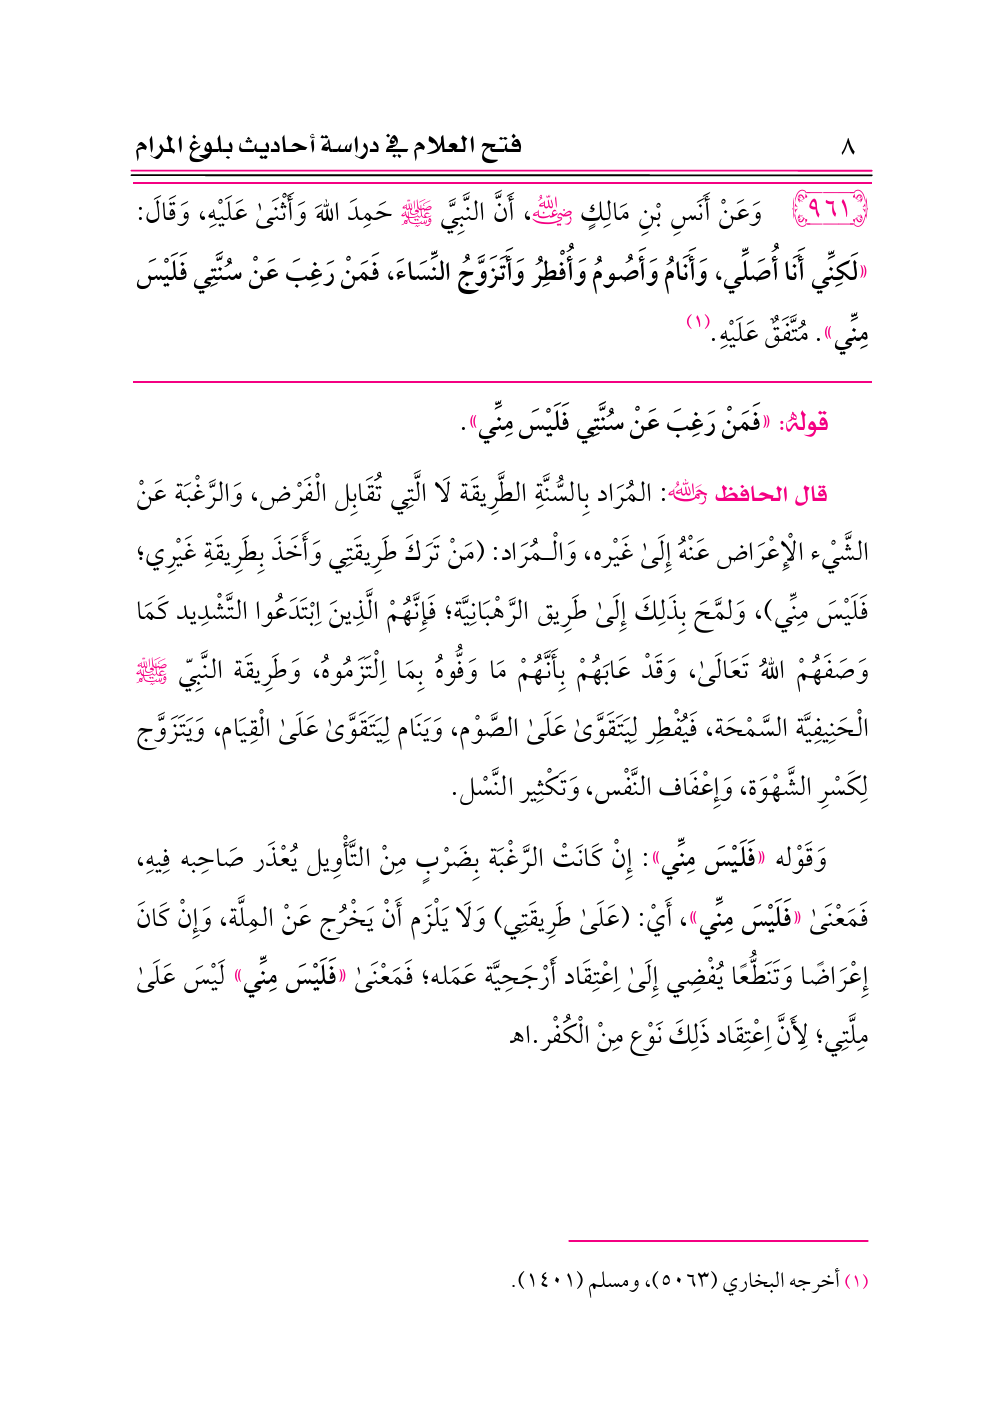 ٨ فتح العلام في دراسة أحاديث بلوغ المرام
٩٦١ وَعَنْ أَنَسِ بْنِ مَالِكٍ رضي الله عنه، أَنَّ النَّبِيَّ ﷺ حَمِدَ اللهَ وَأَثْنَىٰ عَلَيْهِ، وَقَالَ:
«لَكِنِّي أَنَا أُصَلِّي، وَأَنَامُ وَأَصُومُ وَأُفْطِرُ وَأَتَزَوَّجُ النِّسَاءَ، فَمَنْ رَغِبَ عَنْ سُنَّتِي فَلَيْسَ
مِنِّي». مُتَّفَقٌ عَلَيْهِ.(١)
قوله: «فَمَنْ رَغِبَ عَنْ سُنَّتِي فَلَيْسَ مِنِّي».
قال الحافظ رحمه الله: المُرَاد بِالسُّنَّةِ الطَّرِيقَة لَا الَّتِي تُقَابِل الْفَرْض، وَالرَّغْبَة عَنْ
الشَّيْء الْإِعْرَاض عَنْهُ إِلَىٰ غَيْره، وَالْـمُرَاد: (مَنْ تَرَكَ طَرِيقَتِي وَأَخَذَ بِطَرِيقَةِ غَيْرِي؛
فَلَيْسَ مِنِّي)، وَلمَّحَ بِذَلِكَ إِلَىٰ طَرِيق الرَّهْبَانِيَّة؛ فَإِنَّهُمْ الَّذِينَ اِبْتَدَعُوا التَّشْدِيد كَمَا
وَصَفَهُمْ اللهُ تَعَالَىٰ، وَقَدْ عَابَهُمْ بِأَنَّهُمْ مَا وَفُّوهُ بِمَا اِلْتَزَمُوهُ، وَطَرِيقَة النَّبِيّ ﷺ
الْحَنِيفِيَّة السَّمْحَة، فَيُفْطِر لِيَتَقَوَّىٰ عَلَىٰ الصَّوْم، وَيَنَام لِيَتَقَوَّىٰ عَلَىٰ الْقِيَام، وَيَتَزَوَّج
لِكَسْرِ الشَّهْوَة، وَإِعْفَاف النَّفْس، وَتَكْثِير النَّسْل.
وَقَوْله «فَلَيْسَ مِنِّي»: إِنْ كَانَتْ الرَّغْبَة بِضَرْبٍ مِنْ التَّأْوِيل يُعْذَر صَاحِبه فِيهِ،
فَمَعْنَىٰ «فَلَيْسَ مِنِّي»، أَيْ: (عَلَىٰ طَرِيقَتِي) وَلَا يَلْزَم أَنْ يَخْرُج عَنْ المِلَّة، وَإِنْ كَانَ
إِعْرَاضًا وَتَنَطُّعًا يُفْضِي إِلَىٰ اِعْتِقَاد أَرْجَحِيَّة عَمَله؛ فَمَعْنَىٰ «فَلَيْسَ مِنِّي» لَيْسَ عَلَىٰ
مِلَّتِي؛ لِأَنَّ اِعْتِقَاد ذَلِكَ نَوْع مِنْ الْكُفْر.اهـ
(١) أخرجه البخاري (٥٠٦٣)، ومسلم (١٤٠١).